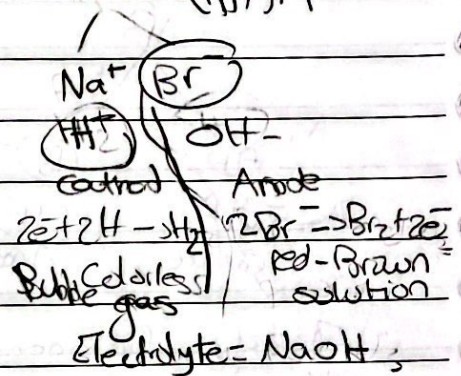 Na⁺ Br⁻
H⁺ OH-
Cathod Anode
2e⁻+2H → H₂ 2Br⁻ → Br₂+2e⁻
Bubble Colorless gas red-Brown solution
Electrolyte = NaOH